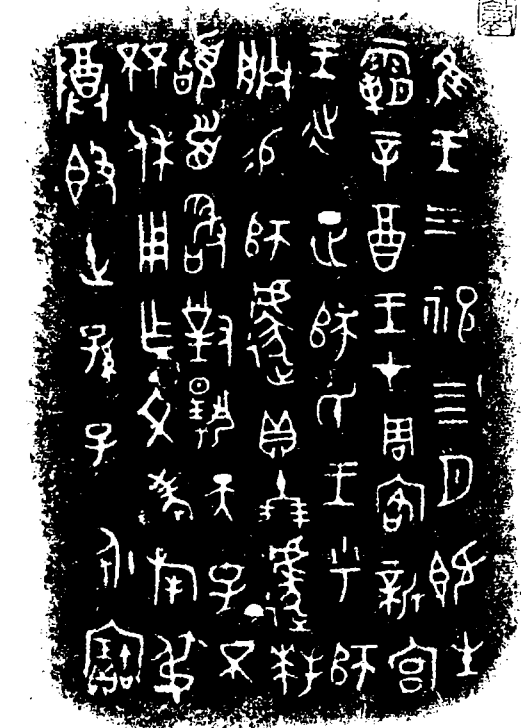 隹王三祀四月既生
霸辛酉王才周客新宮
王𢓊正師氏王乎師
朕易師遽貝十朋遽拜
𩒨首敢對揚天子不
㔻休用乍文考旄弔
尊簋世孫子永寶